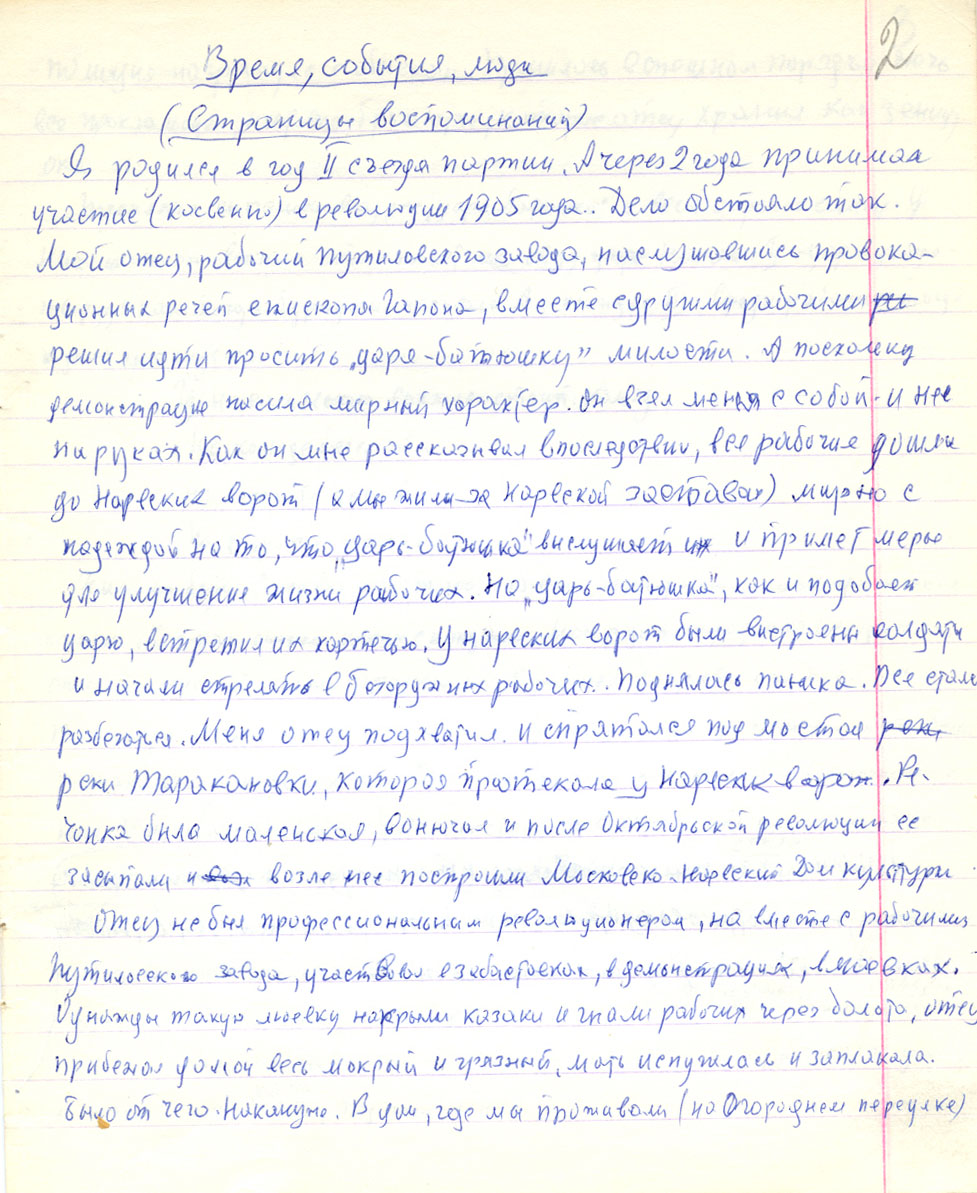 2
Время, события, люди
(Страницы воспоминаний)
Я родился в год II съезда партии. А через 2 года принимал
участие (косвенно) в революции 1905 года.. Дело обстояло так.
Мой отец, рабочий Путиловского завода, наслушавшись провока-
ционных речей епископа Гапона, вместе с другими рабочими
решил идти просить „царя-батюшку" милости. А поскольку
демонстрация носила мирный характер. он взял меня с собой и нес
на руках. Как он мне рассказывал впоследствии, все рабочие дошли
до Нарвских ворот (а мы жили за Нарвской заставой) мирно с
надеждой на то, что „царь-батюшка" выслушает их и примет меры
для улучшения жизни рабочих. Но „царь-батюшка", как и подобает
царю, встретил их картечью. У нарвских ворот были выстроены солдаты
и начали стрелять в безоружных рабочих.. Поднялась паника. Все стали
разбегаться. Меня отец подхватил. и спрятался под мостом
реки Таракановки, которая протекала у Нарвских ворот. Ре-
чонка была маленькая, вонючая и после Октябрьской революции ее
засыпали и возле нее построили Московско-Нарвский Дом культуры
Отец не был профессиональным революционером, но вместе с рабочими
Путиловского завода, участвовал в забастовках, в демонстрациях, в маевках.
Однажды такую маевку накрыли казаки и гнали рабочих через болото, отец
прибежал домой весь мокрый и грязный, мать испугалась и заплакала.
Было от чего. Накануне. В дом, где мы проживали (на Огороднем переулке)